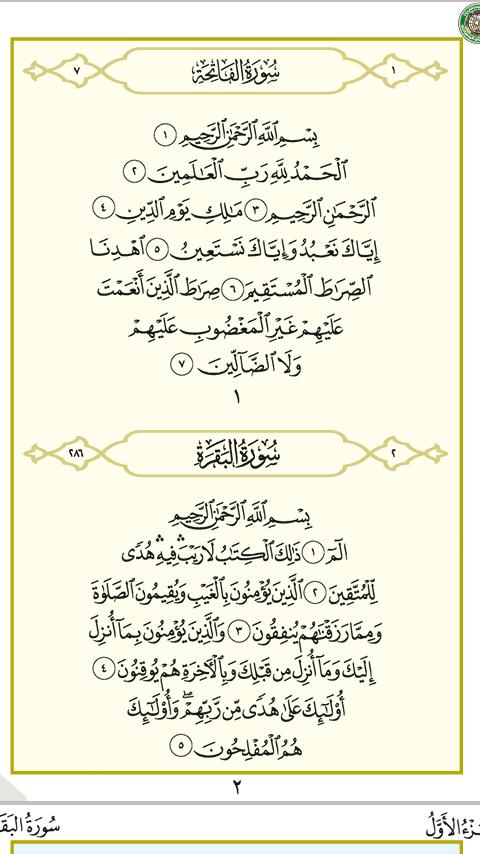 ١ سُورَةُ الفَاتِحَةِ ٧
بِسْمِ ٱللَّهِ ٱلرَّحْمَٰنِ ٱلرَّحِيمِ ١
ٱلْحَمْدُ لِلَّهِ رَبِّ ٱلْعَٰلَمِينَ ٢
ٱلرَّحْمَٰنِ ٱلرَّحِيمِ ٣ مَٰلِكِ يَوْمِ ٱلدِّينِ ٤
إِيَّاكَ نَعْبُدُ وَإِيَّاكَ نَسْتَعِينُ ٥ ٱهْدِنَا
ٱلصِّرَٰطَ ٱلْمُسْتَقِيمَ ٦ صِرَٰطَ ٱلَّذِينَ أَنْعَمْتَ
عَلَيْهِمْ غَيْرِ ٱلْمَغْضُوبِ عَلَيْهِمْ
وَلَا ٱلضَّآلِّينَ ٧
١
٢ سُورَةُ البَقَرَةِ ٢٨٦
بِسْمِ ٱللَّهِ ٱلرَّحْمَٰنِ ٱلرَّحِيمِ
الٓمٓ ١ ذَٰلِكَ ٱلْكِتَٰبُ لَا رَيْبَ ۛ فِيهِ ۛ هُدًى
لِّلْمُتَّقِينَ ٢ ٱلَّذِينَ يُؤْمِنُونَ بِٱلْغَيْبِ وَيُقِيمُونَ ٱلصَّلَوٰةَ
وَمِمَّا رَزَقْنَٰهُمْ يُنفِقُونَ ٣ وَٱلَّذِينَ يُؤْمِنُونَ بِمَآ أُنزِلَ
إِلَيْكَ وَمَآ أُنزِلَ مِن قَبْلِكَ وَبِٱلْأَخِرَةِ هُمْ يُوقِنُونَ ٤
أُو۟لَٰٓئِكَ عَلَىٰ هُدًى مِّن رَّبِّهِمْ ۖ وَأُو۟لَٰٓئِكَ
هُمُ ٱلْمُفْلِحُونَ ٥
٢
الأَوَّلُ سُورَةُ